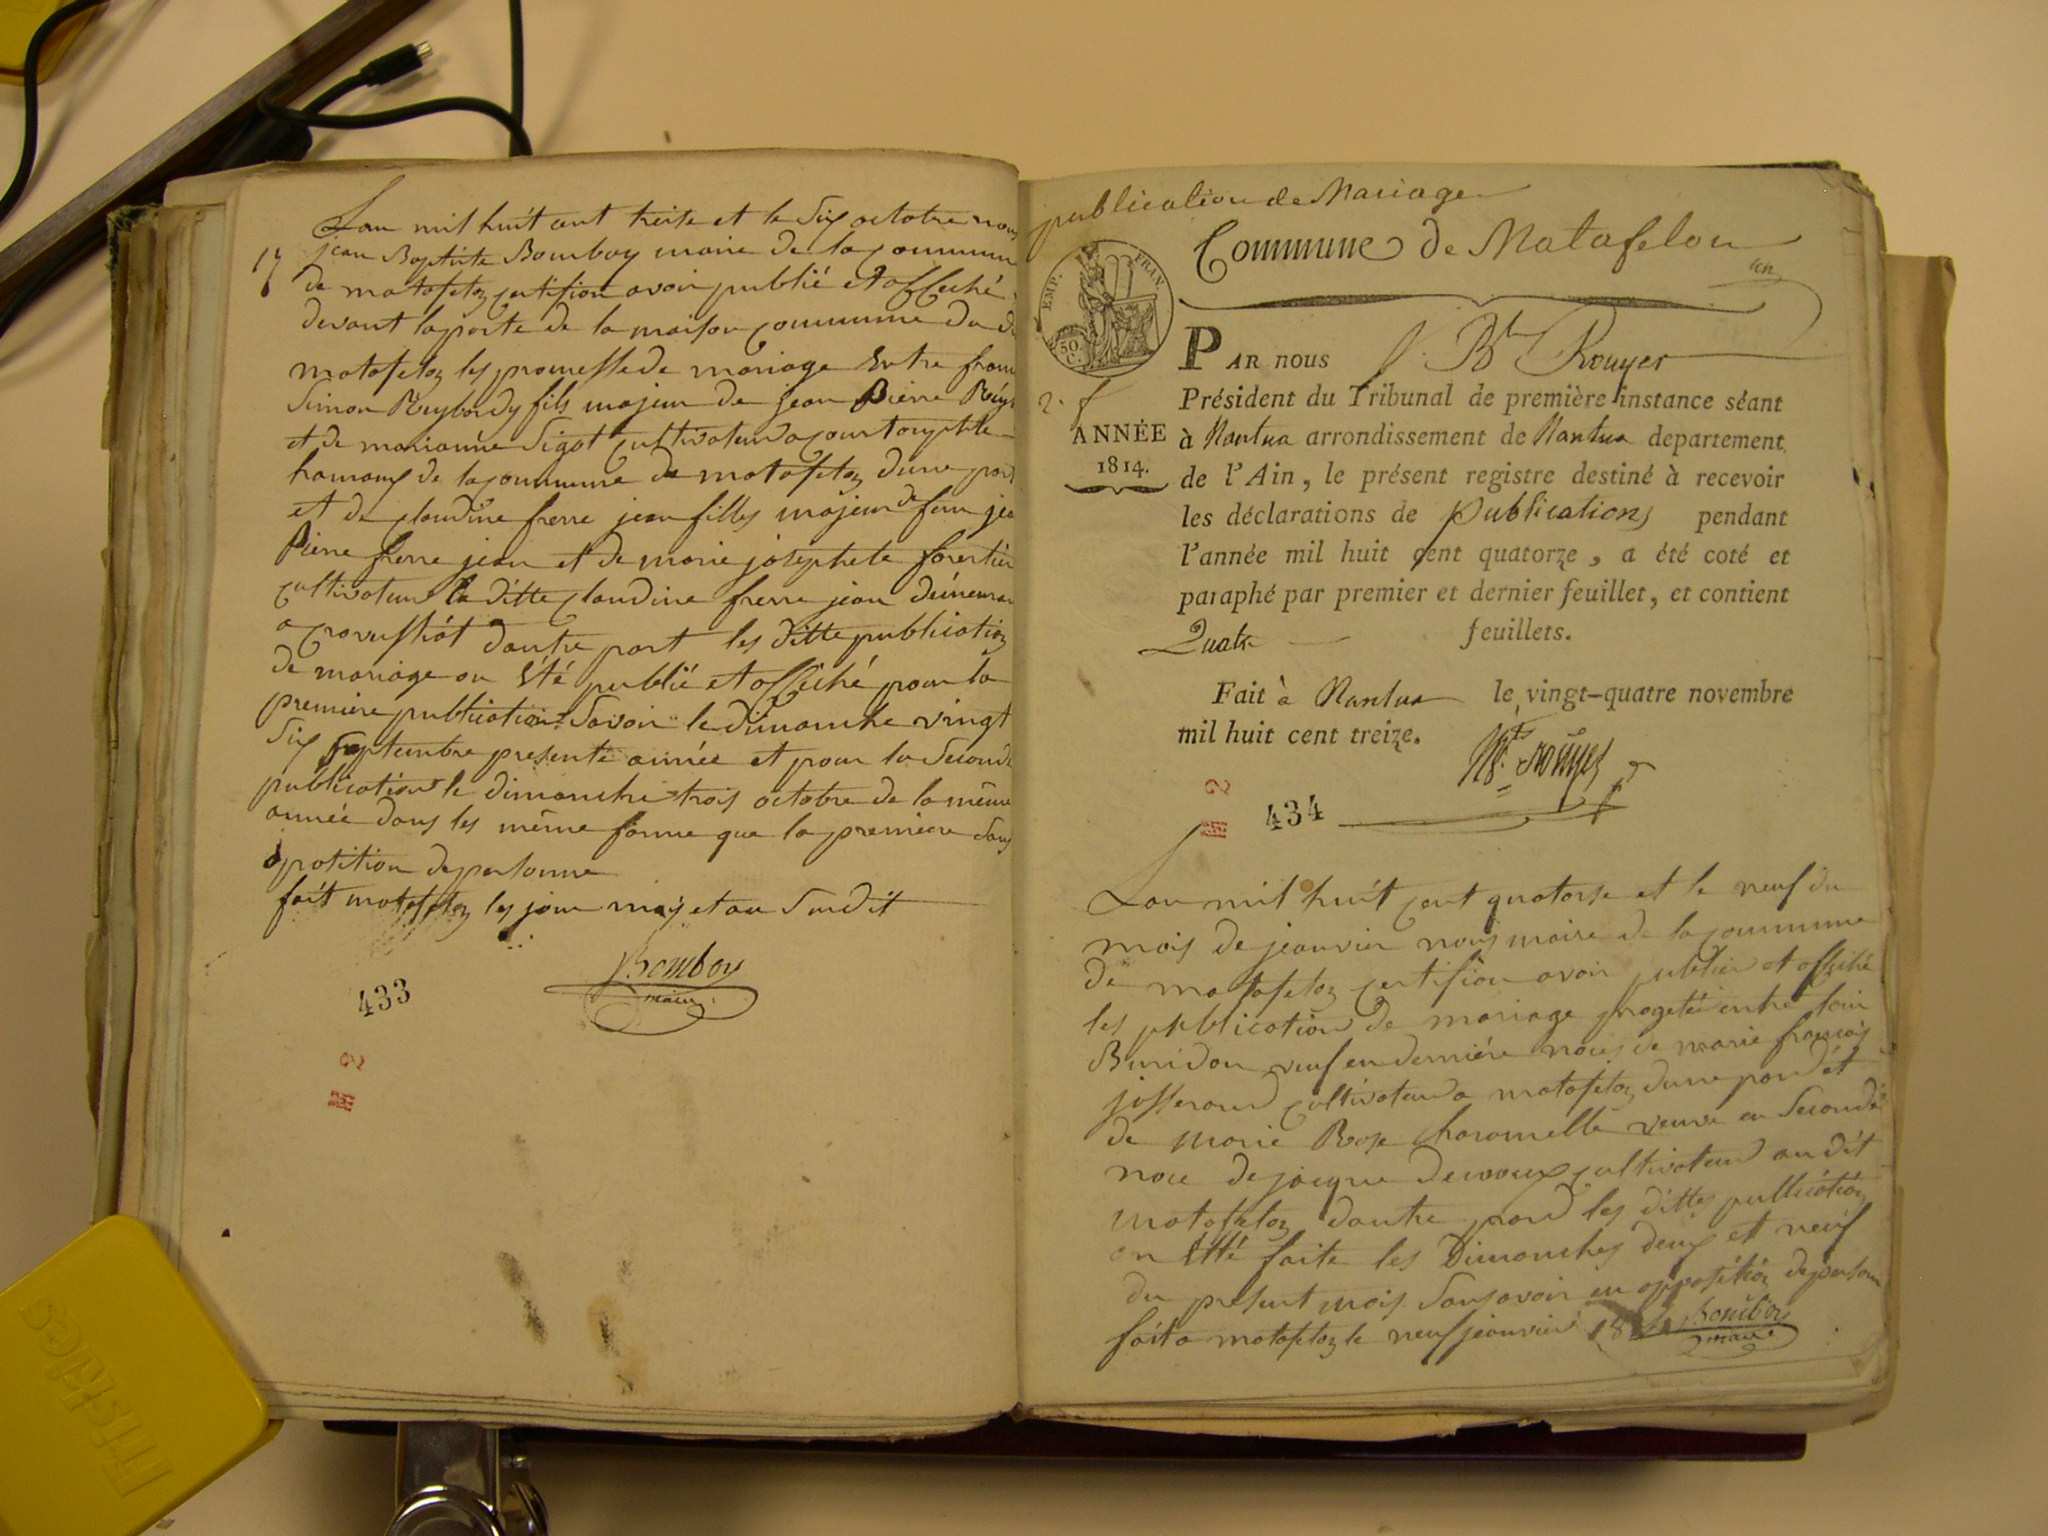 17
Lan mil huit cent treize et le Six octobre nous
jean Baptiste Bomboy maire de la commune
de matafelon certifion avoir publié et affiché
devant la porte de la maison commune du dit
matafelon les promesse de mariage Entre
Simon Reybardy fils majeur de jean Pierre
et de marianne Sigot cultivateur a courtouphle
hamaux de la commune de matafelon dune part
et de claudine frerre jean filles majeur de feu
Pierre frerre jean et de marie josephete forestier
cultivateur la ditte claudine frerre jean
dautre part les ditte publication
de mariage on Eté publié et affiché pour la
premiere publication Savoir le dimanche vingt
Six Septembre presente année et pour la Seconde
publication le dimanche trois octobre de la même
année dans les même forme que la premiere Sans
opotition de personne
fait matafelon les jour mois et an Susdit
Bomboy
maire
433
E 2
publication de Mariage
Commune de Matafelon
EMP. FRAN.
50 C.
PAR nous J. Bte Rouyer
Président du Tribunal de première instance séant
ANNÉE
1814.
à Nantua arrondissement de Nantua departement
de l'Ain, le présent registre destiné à recevoir
les déclarations de publications pendant
l'année mil huit cent quatorze, a été coté et
paraphé par premier et dernier feuillet, et contient
Quatre feuillets.
Fait à Nantua le vingt-quatre novembre
mil huit cent treize.
Rouyer
E 2
434
Lan mil huit cent quatorse et le neuf du
mois de jeanvier nous maire de la commune
de matafelon certifion avoir publier et affiché
les publication de mariage progeté entre
Buridon veuf en derniére noces de marie francois
josserand cultivateur a matafelon dune pard et
de marie Rose charamelle veuve en Seconde
noce de jacque cultivateur au dit
matafelon dautre pard les dittes publication
on Etté faite les Dimanches deux et neuf
du present mois Sans avoir eu opposition de personne
fait a matafelon le neuf jeanvier 1814 Bomboy
maire